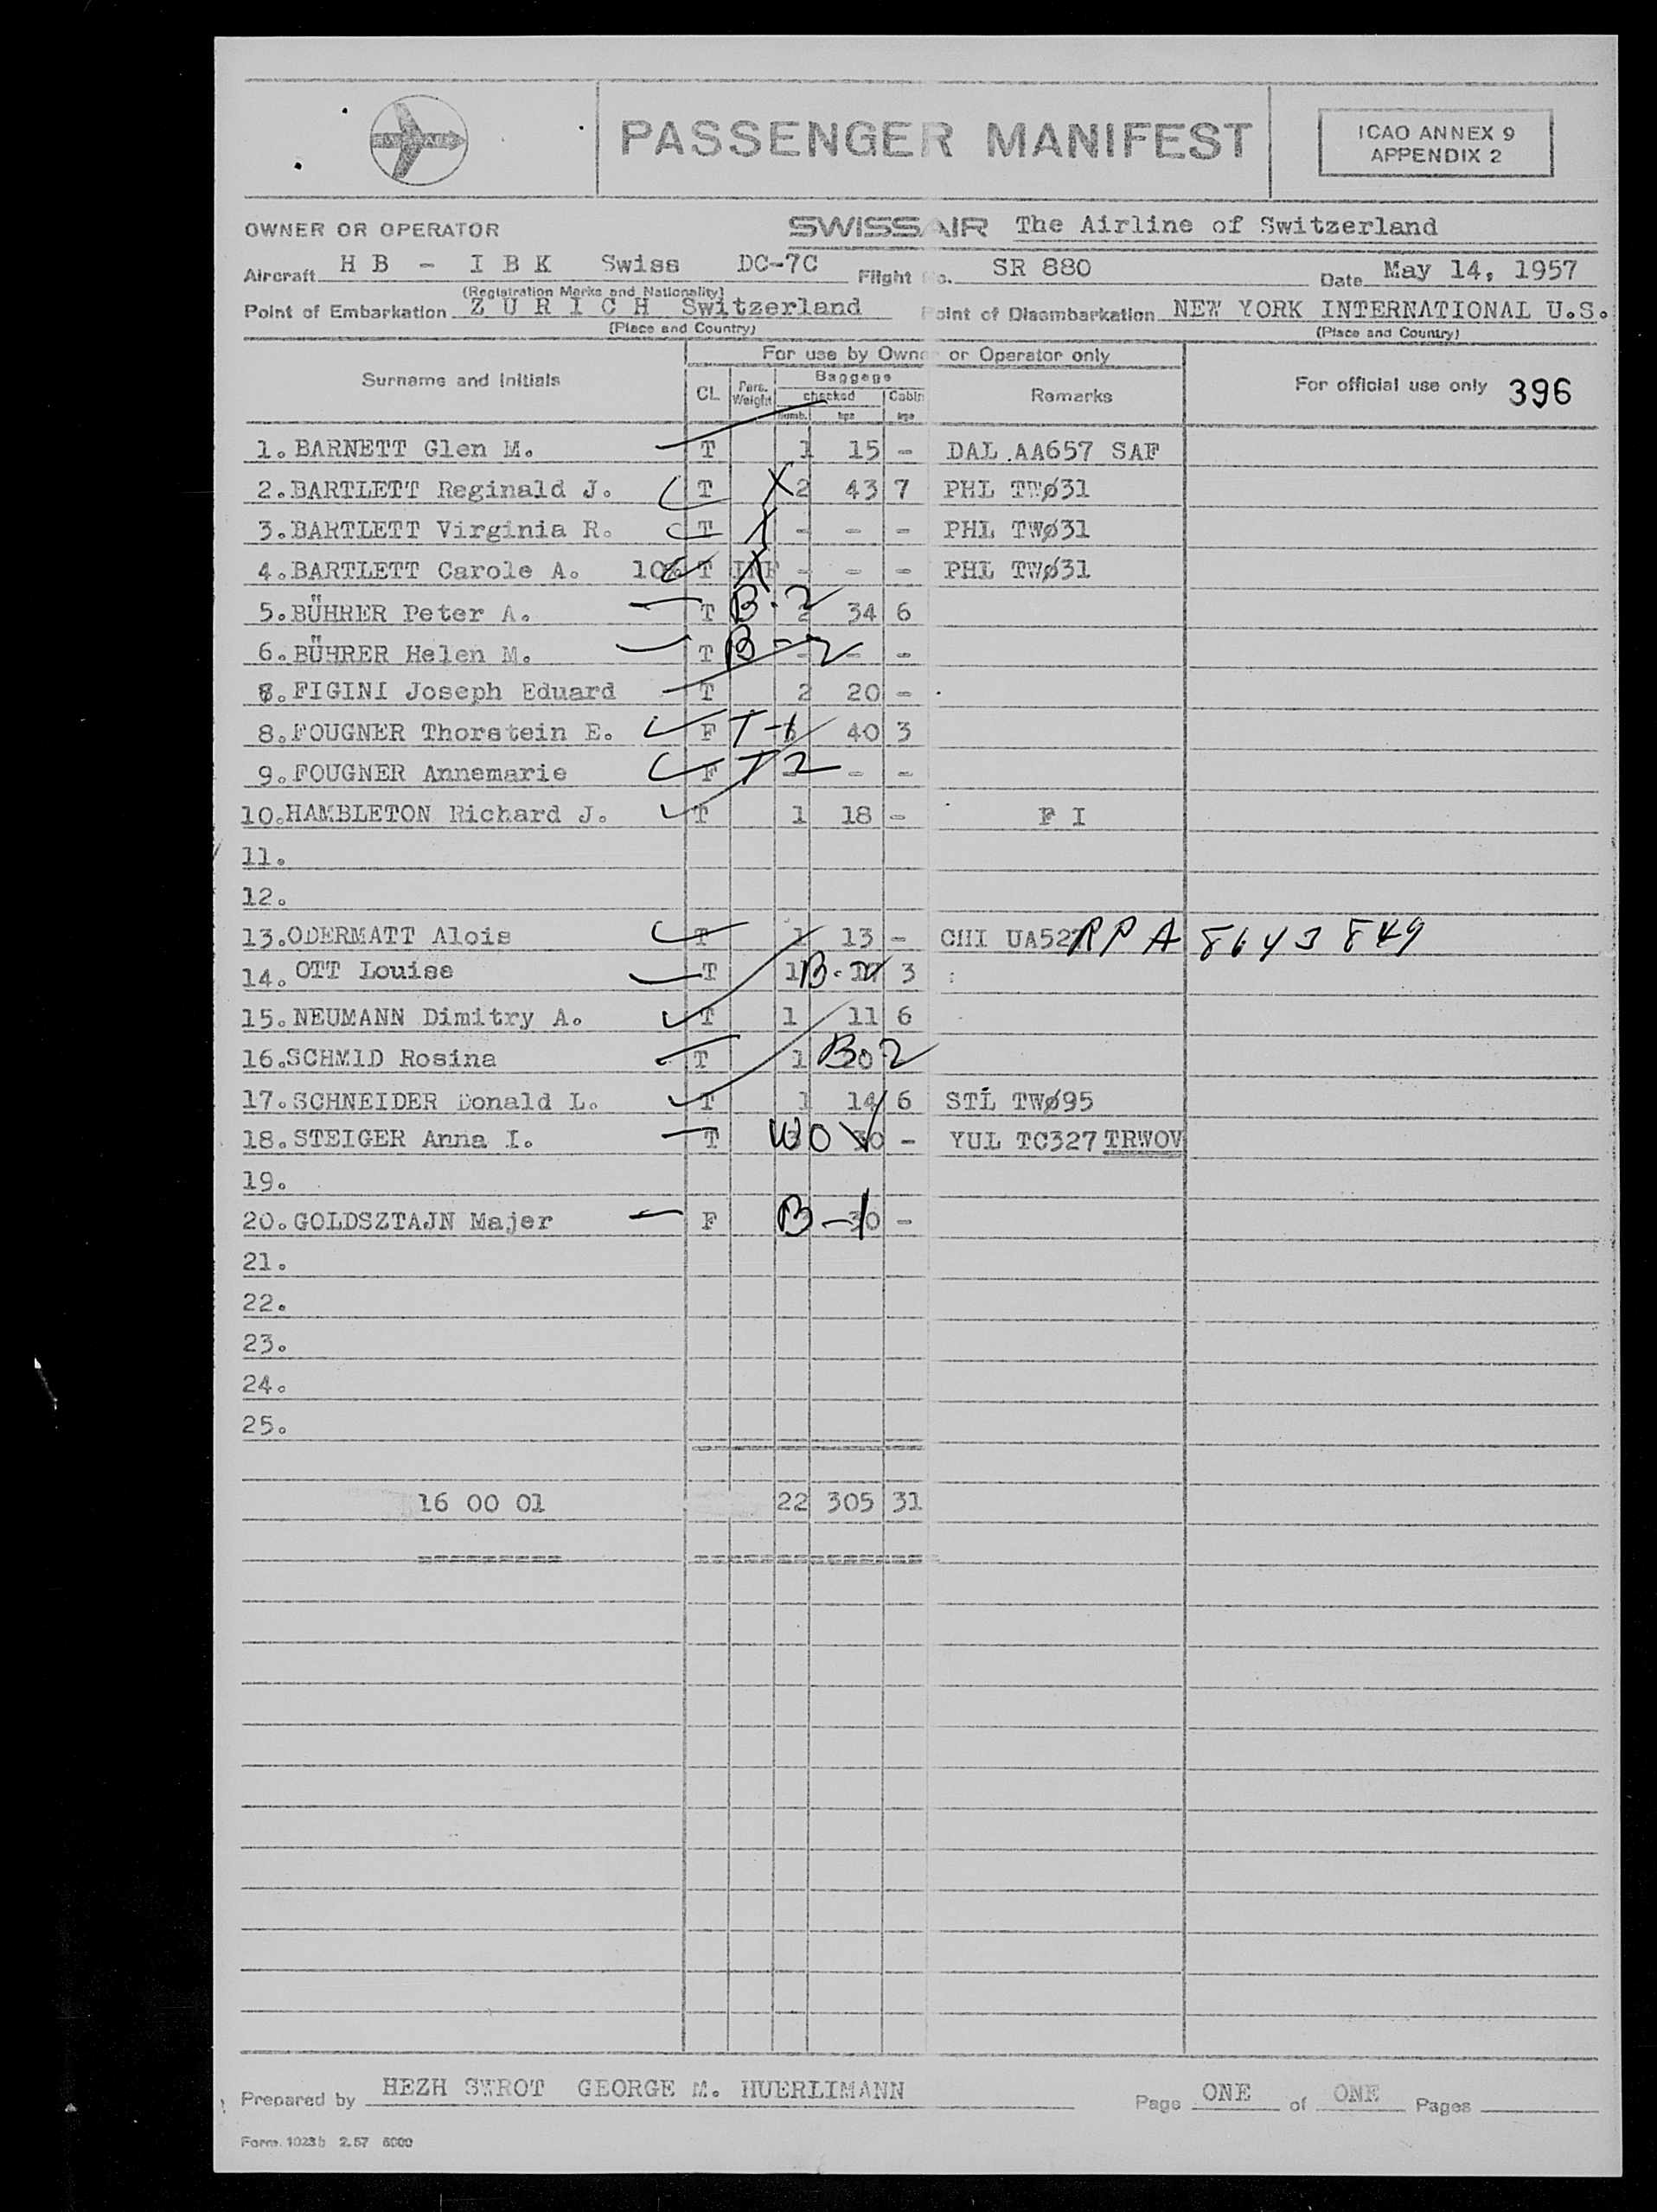 PASSENGER MANIFEST
ICAO ANNEX 9
APPENDIX 2
OWNER OR OPERATOR SWISSAIR The Airline of Switzerland
Aircraft H B - I B K Swiss DC-7C Flight No. SR 880 Date May 14, 1957
(Registration Marks and Nationality)
Point of Embarkation Z U R I C H Switzerland Point of Disembarkation NEW YORK INTERNATIONAL U.S.
(Place and Country) (Place and Country)
For use by Owner or Operator only
Surname and Initials CL Pers. Weight Baggage checked numb. kgs Cabin kgs Remarks For official use only 396
1. BARNETT Glen M. T 1 15 - DAL AA657 SAF
2. BARTLETT Reginald J. T X 2 43 7 PHL TWø31
3. BARTLETT Virginia R. T X - - - PHL TWø31
4. BARTLETT Carole A. 10% T INF X - - - PHL TWø31
5. BÜHRER Peter A. T B-2 2 34 6
6. BÜHRER Helen M. T B-2 - - -
8. FIGINI Joseph Eduard T 2 20 -
8. FOUGNER Thorstein E. F T-1 40 3
9. FOUGNER Annemarie F T2 - - -
10. HAMBLETON Richard J. T 1 18 - F I
11.
12.
13. ODERMATT Alois T 1 13 - CHI UA527 RPA 8643849
14. OTT Louise T 1 B- 3
15. NEUMANN Dimitry A. T 1 11 6
16. SCHMID Rosina T 1 20 B 2
17. SCHNEIDER Donald L. T 1 14 6 STL TWø95
18. STEIGER Anna I. T WOV 30 - YUL TC327 TRWOV
19.
20. GOLDSZTAJN Majer F B-1 30 -
21.
22.
23.
24.
25.
16 00 01 22 305 31
Prepared by HEZH SWROT GEORGE M. HUERLIMANN Page ONE of ONE Pages
Form. 1023b 2.57 6000